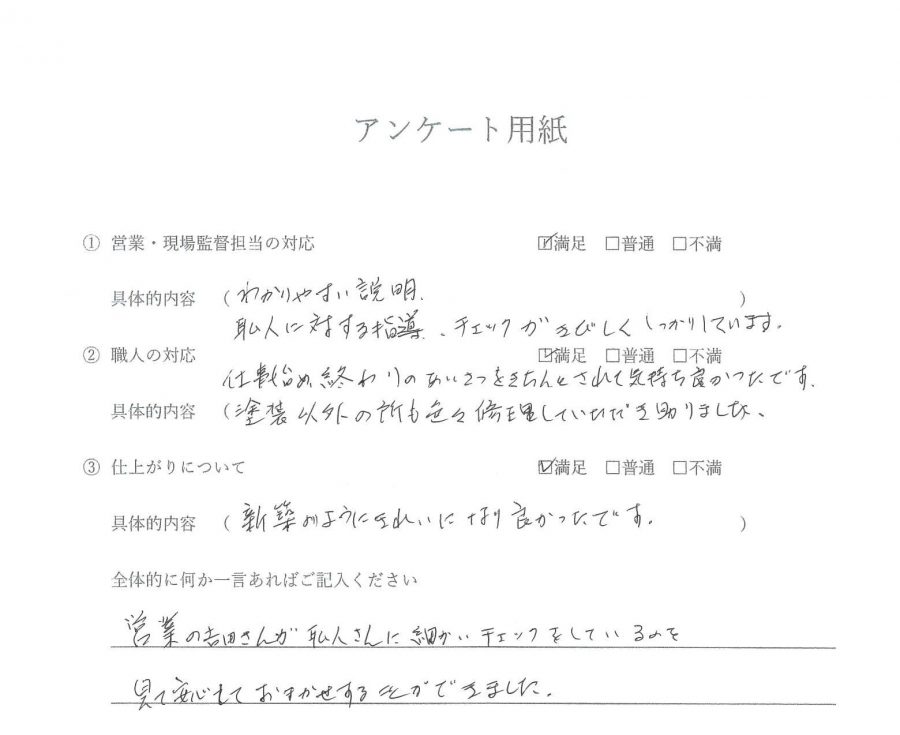 アンケート用紙
① 営業・現場監督担当の対応 ☑満足 □普通 □不満
具体的内容 ( わかりやすい説明、 )
職人に対する指導、チェックがきびしくしっかりしています。
② 職人の対応 ☑満足 □普通 □不満
仕事始め終わりのあいさつをきちんとされて気持ち良かったです。
具体的内容 (塗装以外の所も色々修理していただき助りました。
③ 仕上がりについて ☑満足 □普通 □不満
具体的内容 ( 新築のようにきれいになり良かったです。 )
全体的に何か一言あればご記入ください
営業の吉田さんが職人さんに細かいチェックをしているのを
見て安心しておまかせする事ができました。